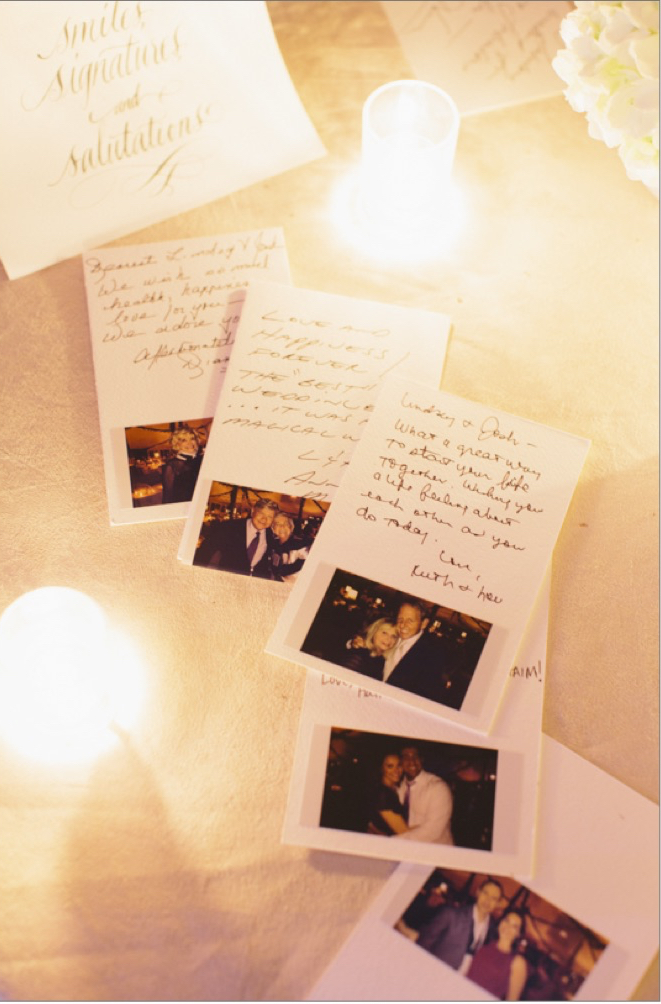 smiles,
signatures
and
salutations
Dearest Lindsey & Josh
We wish so much
health, happiness
love for you —
We adore yo
Affectionately
LOVE AND
HAPPINESS!
FOREVER!
THE "BEST"
WEDDING
... IT WAS
MAGICAL W
Lindsey & Josh —
What a great way
to start your life
together. Wishing you
a life feeling about
each other as you
do today.
Love,
Ruth & Lou
AIM!
Love,